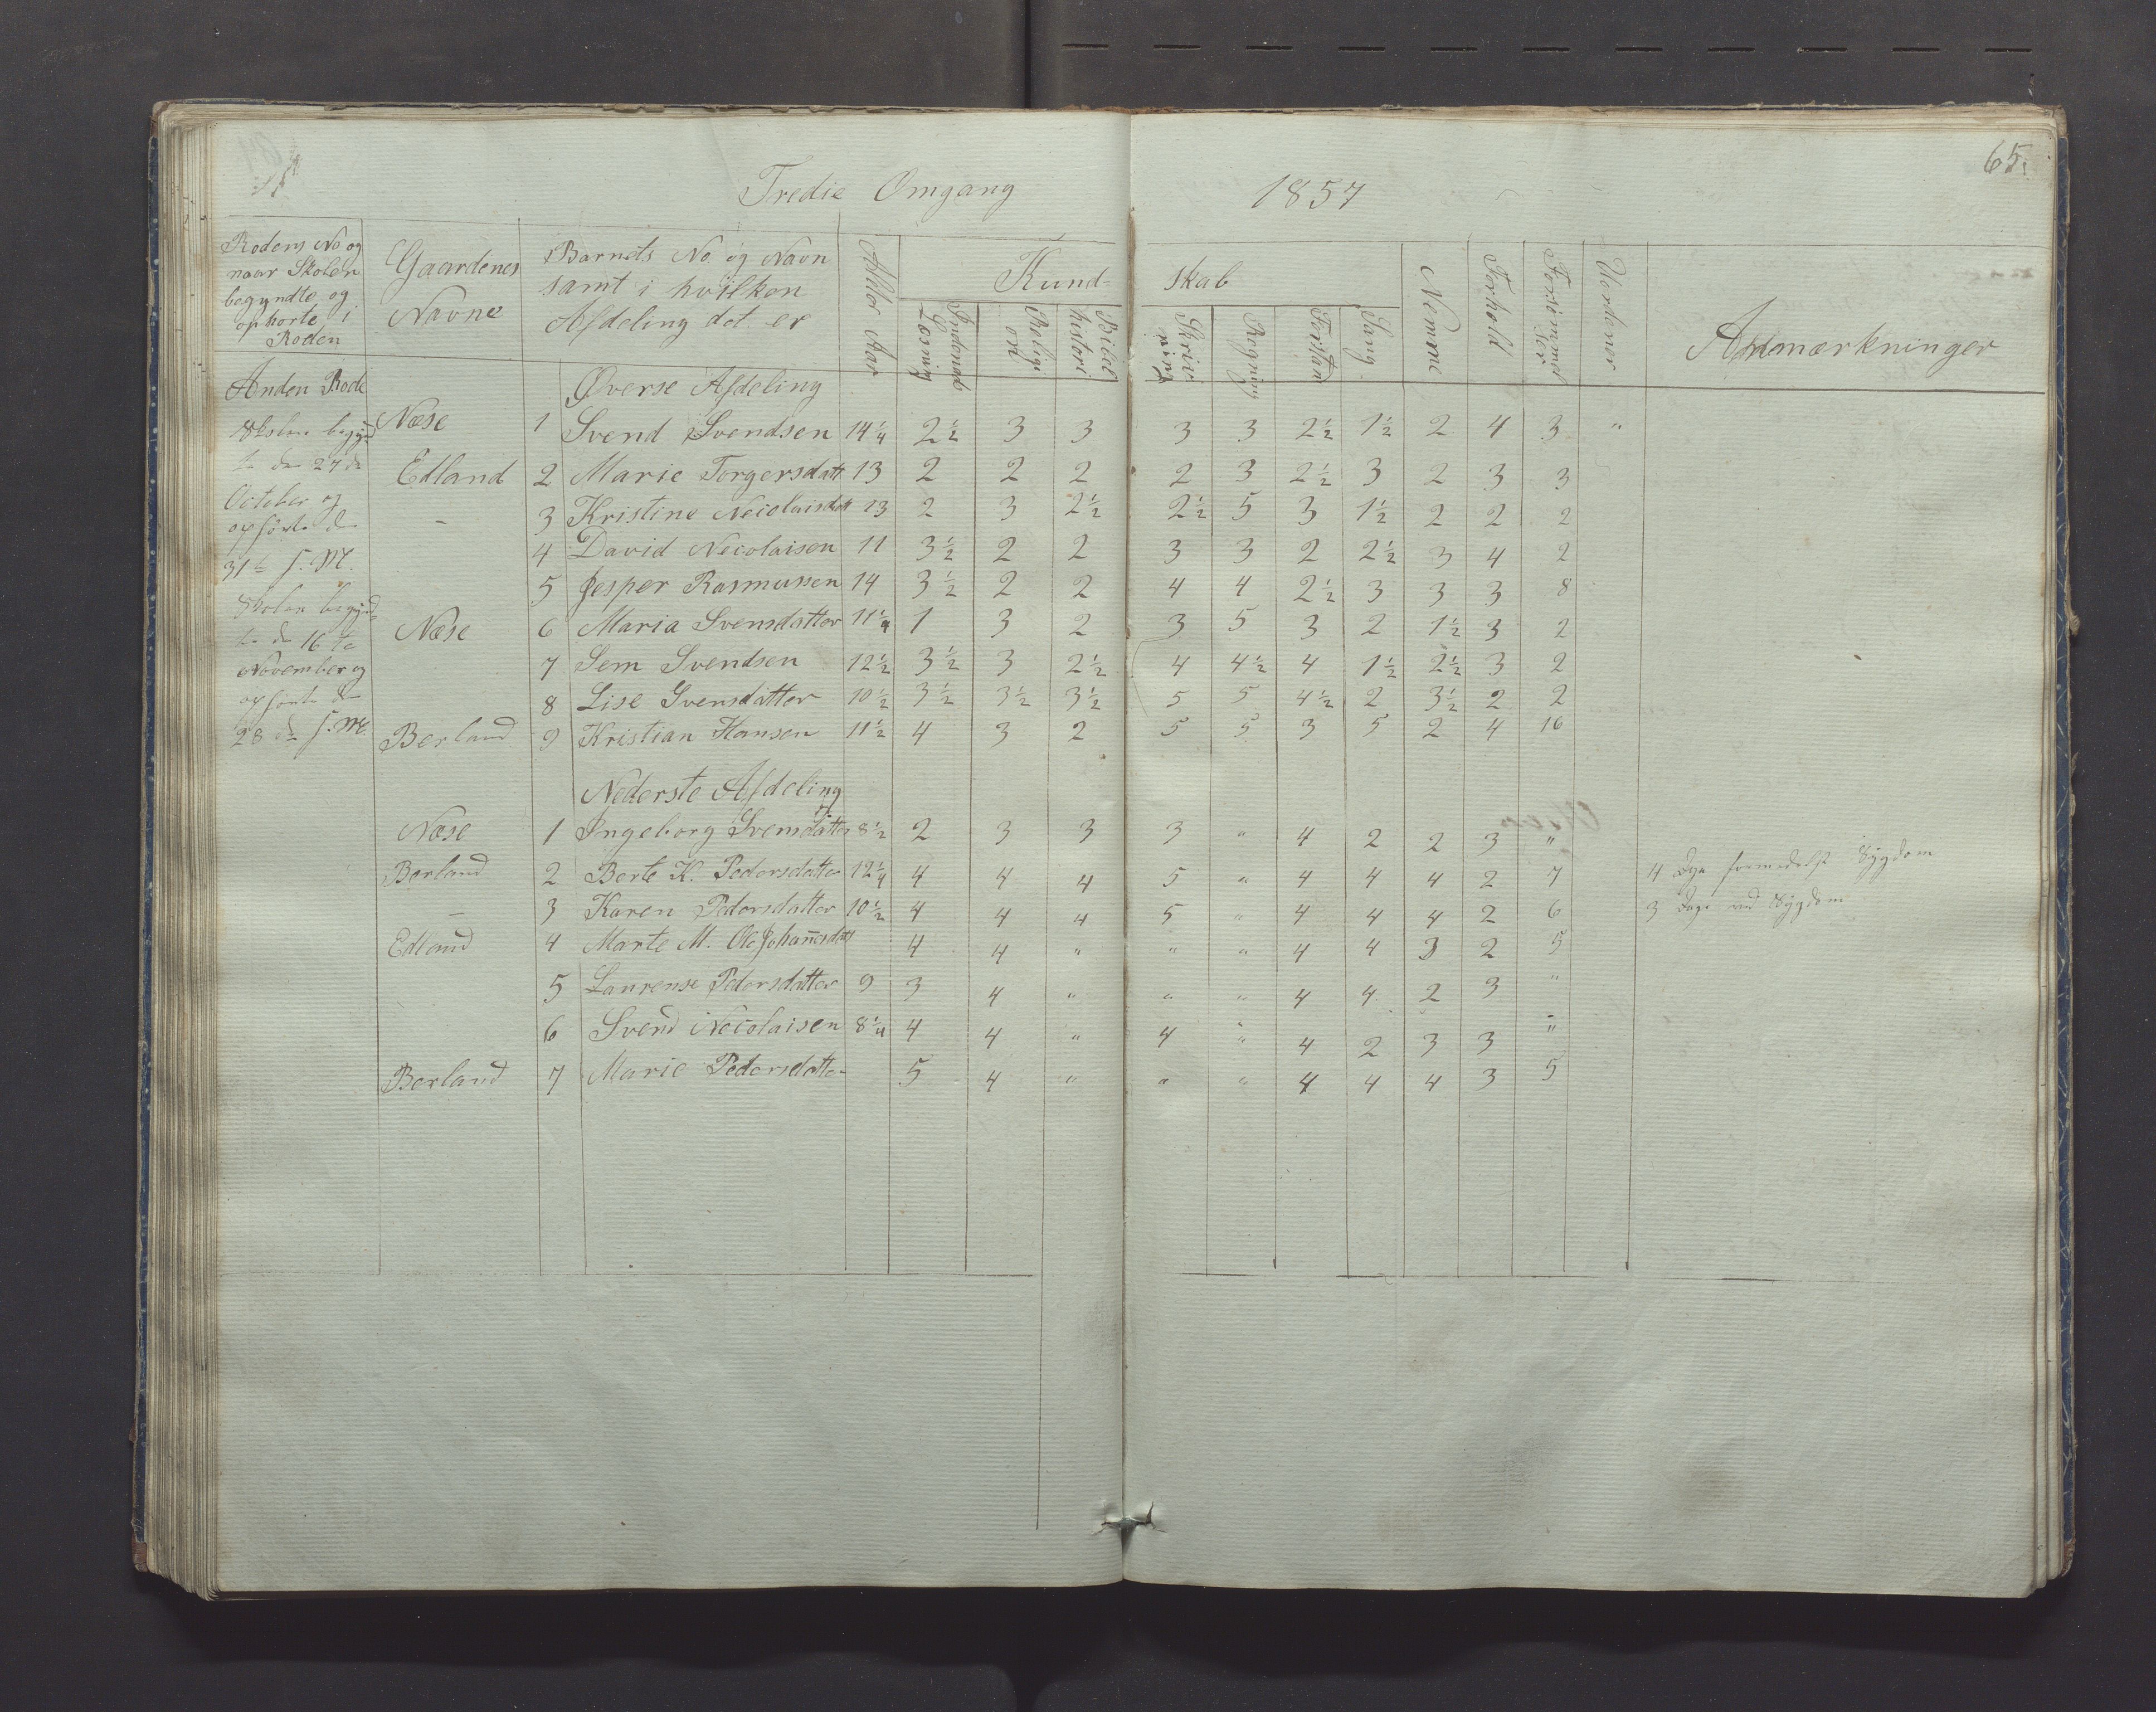 65.
Tredie Omgang 1857
Rodens No og naar Skolen begyndte og ophorte i Roden
Gaardenes Navne
Barnets No. og Navn samt i hvilken Afdeling det er
Alder Aar
Kund- skab
Indenad Læsning
Religion
Bibelhistori
Skrivning
Regning
Forstan
Sang
Nemme
Forhold
Forsømmelser
Uordener
Anmærkninger
Anden Rode
Øverse Afdeling
Skolen begynd
te den 27de
October og
ophörte den
31te s. M.
Skolen begynd
te den 16te
November og
ophörte den
28de s. M.
Næse 1 Svend Svendsen 14¼ 2½ 3 3 3 3 2½ 1½ 2 4 3 "
Edland 2 Marie Torgersdatt 13 2 2 2 2 3 2½ 3 2 3 3
- 3 Kristine Necolaisdatt 13 2 3 2½ 2½ 5 3 1½ 2 2 2
4 David Necolaisen 11 3½ 2 2 3 3 2 2½ 3 4 2
5 Jesper Rasmussen 14 3½ 2 2 4 4 2½ 3 3 3 8
Næse 6 Maria Svensdatter 11¼ 1 3 2 3 5 3 2 1½ 3 2
7 Sem Svendsen 12½ 3½ 3 2½ 4 4½ 4 1½ 2½ 3 2
8 Lise Svensdatter 10½ 3½ 3½ 3½ 5 5 4½ 2 3½ 2 2
Berland 9 Kristian Hansen 11½ 4 3 2 5 5 3 5 2 4 16
Nederste Afdeling
Næse 1 Ingeborg Svensdatter 8½ 2 3 3 3 " 4 2 2 3 "
Berland 2 Berte K. Pedersdatter 12¼ 4 4 4 5 " 4 4 4 2 7 4 Dage formedelst Sygdom
- 3 Karen Pedersdatter 10½ 4 4 4 5 " 4 4 4 2 6 3 Dage ved Sygdom
Edland 4 Marte M. Ole Johannesdatt 4 4 " " " 4 4 3 2 5
5 Laurense Pedersdatter 9 3 4 " " " 4 4 2 3 "
6 Svend Necolaisen 8¼ 4 4 " 4 " 4 2 3 3 "
Berland 7 Marie Pedersdatter 5 4 " " " 4 4 4 3 5